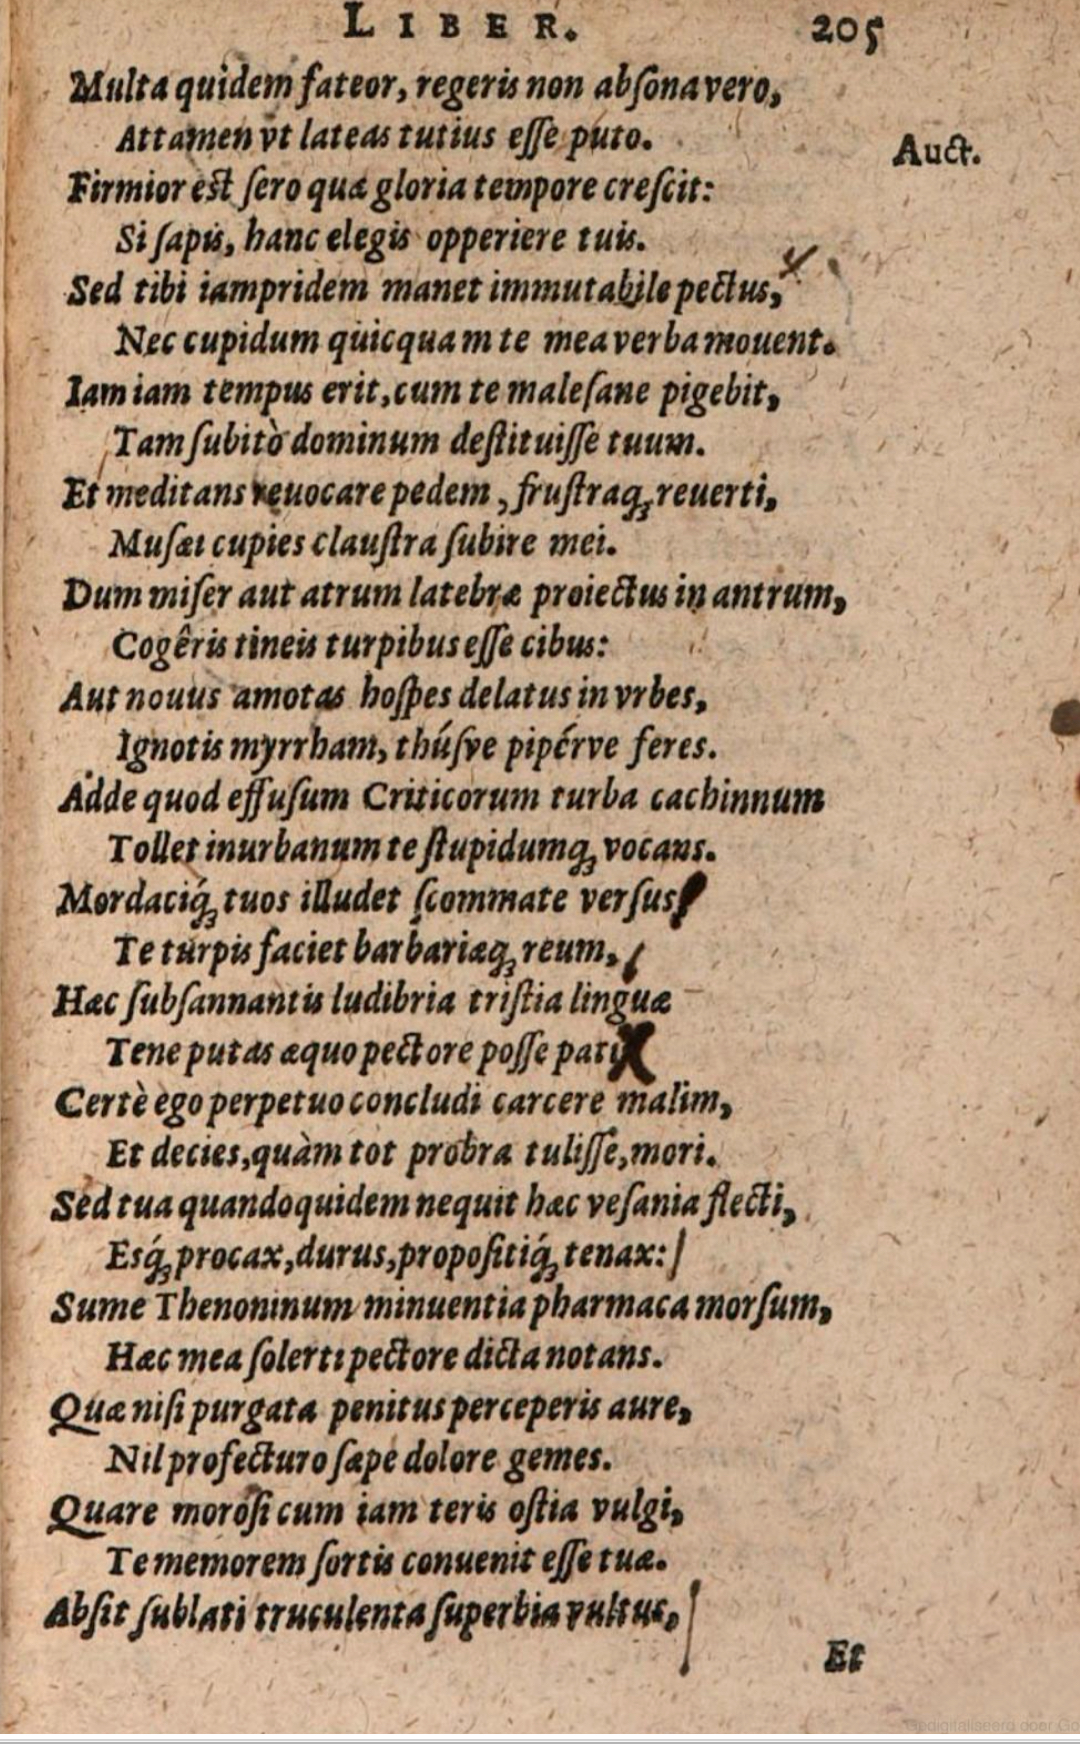 LIBER. 205
Multa quidem fateor, regeris non abſona vero,
Attamen vt lateas tutius eſſe puto.
Auct.
Firmior est ſero quæ gloria tempore creſcit:
Si ſapis, hanc elegis opperiere tuis.
Sed tibi iampridem manet immutabile pectus,
Nec cupidum quicquam te mea verba mouent.
Iam iam tempus erit, cum te maleſane pigebit,
Tam ſubitò dominum deſtituiſſe tuum.
Et meditans reuocare pedem, fruſtraq́; reuerti,
Muſæi cupies clauſtra ſubire mei.
Dum miſer aut atrum latebræ proiectus in antrum,
Cogêris tineis turpibus eſſe cibus:
Aut nouus amotas hoſpes delatus in vrbes,
Ignotis myrrham, thúſve pipérve feres.
Adde quod effuſum Criticorum turba cachinnum
Tollet inurbanum te ſtupidumq; vocans.
Mordaciq́; tuos illudet ſcommate verſus,
Te turpis faciet barbariæq; reum,
Hæc ſubſannantis ludibria triſtia linguæ
Tene putas æquo pectore poſſe pati
Certè ego perpetuo concludi carcere malim,
Et decies, quàm tot probra tuliſſe, mori.
Sed tua quandoquidem nequit hæc veſania flecti,
Esq́; procax, durus, propoſitiq́; tenax:
Sume Thenoninum minuentia pharmaca morſum,
Hæc mea ſolerti pectore dicta notans.
Quæ niſi purgata penitus perceperis aure,
Nil profecturo ſæpe dolore gemes.
Quare moroſi cum iam teris oſtia vulgi,
Te memorem ſortis conuenit eſſe tuæ.
Abſit ſublati truculenta ſuperbia vultus,
Et
Gedigitaliseerd door Go